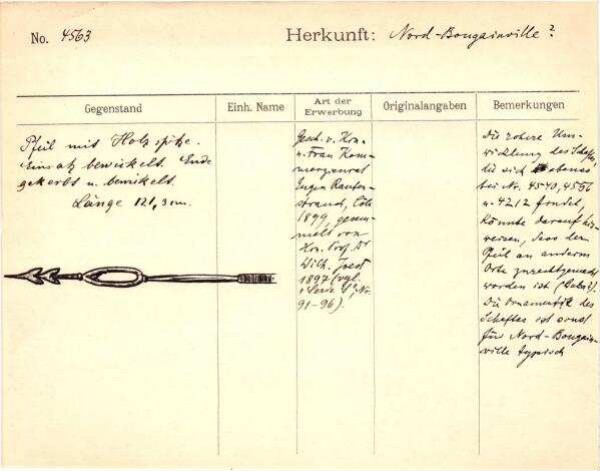 No. 4563
Herkunft: Nord-Bougainville?
Gegenstand
Einh. Name
Art der Erwerbung
Originalangaben
Bemerkungen
Pfeil mit Holzspitze.
Einsatz bewickelt. Ende
gekerbt u. bewickelt.
Länge 121,3 cm.
Gesch. v. Hrn.
u. Frau Kom-
merzienrat
Eugen Rauten-
strauch, Cöln
1899, gesam-
melt von
Hrn. Prof. Dr
Wilh. Joest
1897 (vgl.
91-96).
Die rohere Um-
wicklung des Schaftes,
die sich ebenso
bei Nr. 4540, 4556
u. 4212 findet,
könnte darauf hin-
weisen, dass der
Pfeil an anderem
Orte zurechtgemacht
worden ist
Die Ornamentik des
Schaftes ist sonst
für Nord-Bougain-
ville typisch